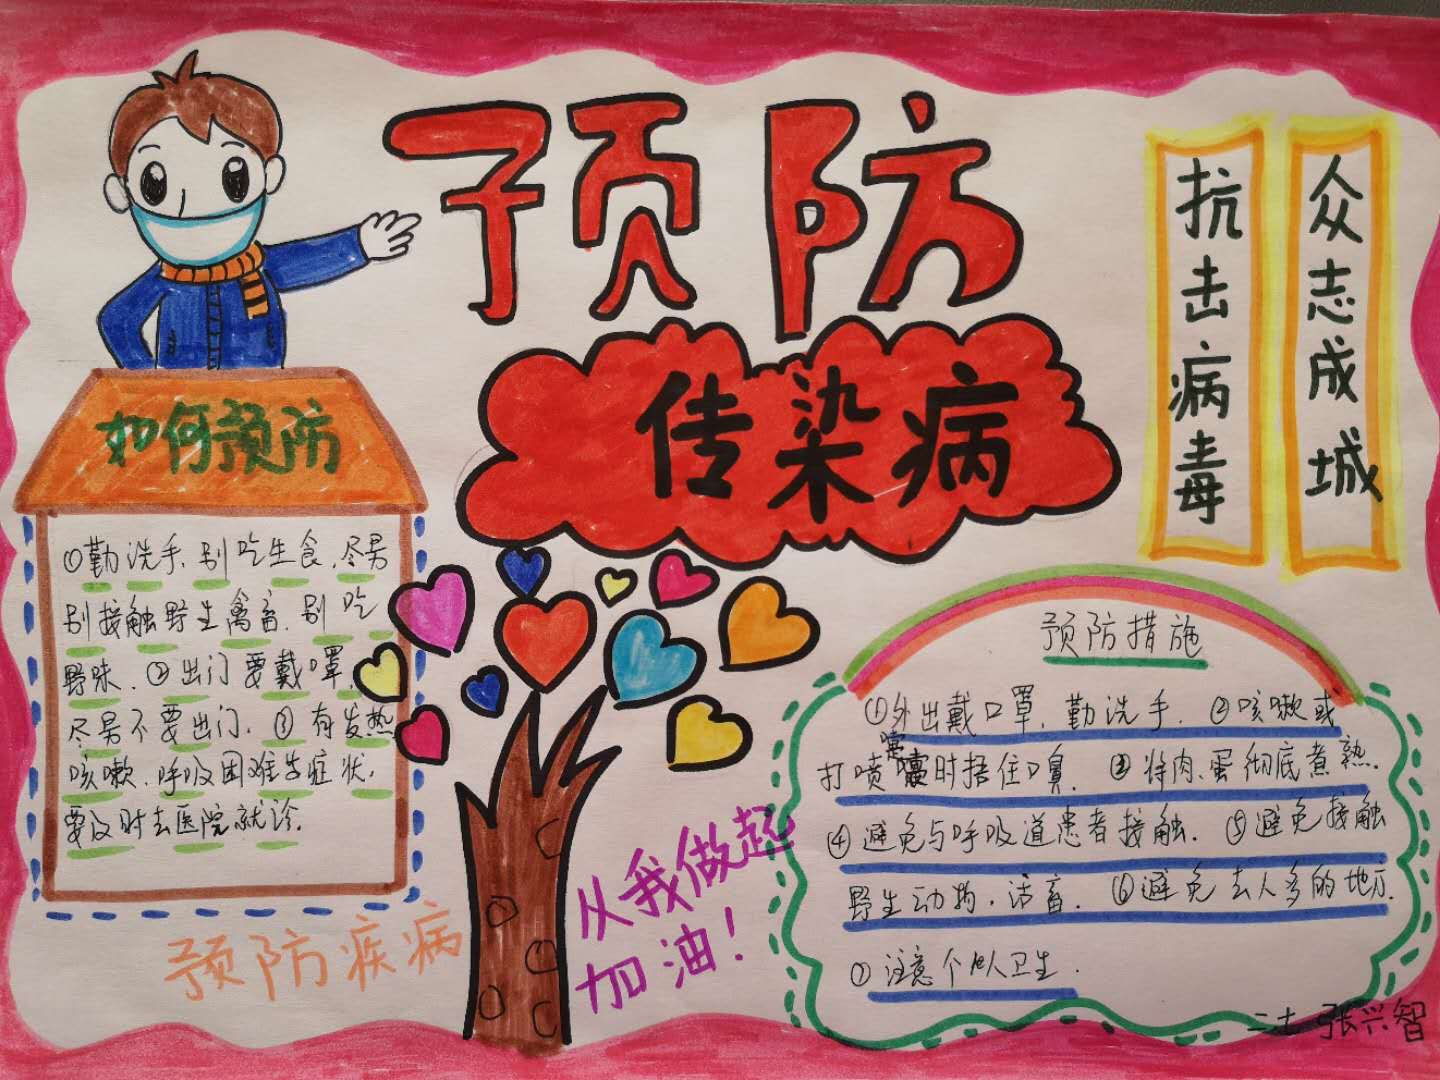 预防
传染病
众志成城
抗击病毒
如何预防
①勤洗手、别吃生食、尽另
别接触野生禽畜、别吃
野味、②出门要戴口罩,
尽另不要出门、③有发热
咳嗽、呼吸困难等症状,
要及时去医院就诊.
预防疾病
从我做起
加油！
预防措施
①外出戴口罩、勤洗手. ②咳嗽或
打喷嚏时捂住口鼻. ③将肉、蛋彻底煮熟.
④避免与呼吸道患者接触. ⑤避免接触
野生动物、活畜. ⑥避免去人多的地方.
⑦注意个人卫生.
二七 张兴智